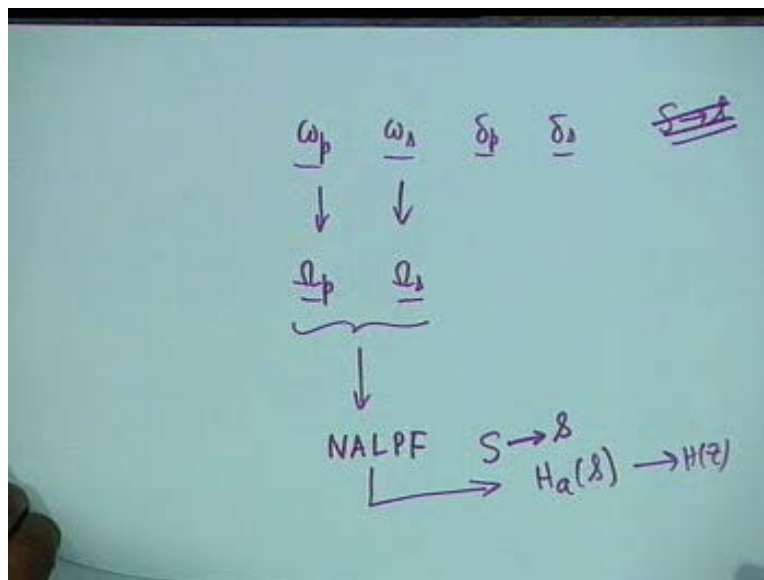 ωp ωs δp δs S→s
Ωp Ωs
NALPF S→s
Ha(s) → H(z)